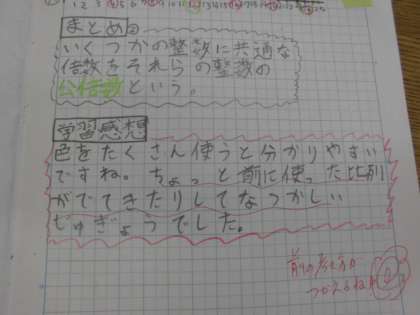 まとめ②
いくつかの整数に共通な
倍数をそれらの整数の
公倍数という。
学習感想
色をたくさん使うと分かりやすい
ですね。ちょっと前に使った比例
がでてきたりしてなつかしい
じゅぎょうでした。
前の考え方が
つかえるね